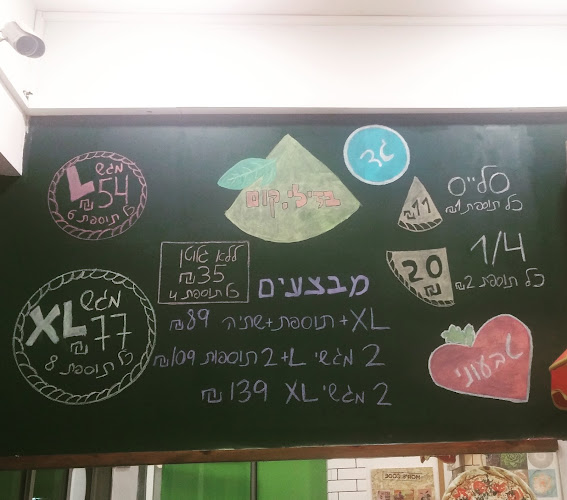 בזילי.קום
מגש
L
54 ₪
כל תוספת 6
סלייס
₪11
כל תוספת 1₪
1/4
20
₪
כל תוספת 2₪
ללא גלוטן
₪35
כל תוספת 4
מבצעים
XL+ תוספת+שתיה 89₪
2 מגשי L+ 2 תוספות 109₪
2 מגשי XL 139 ₪
מגש
XL
77
₪
כל תוספת 8
טבעוני